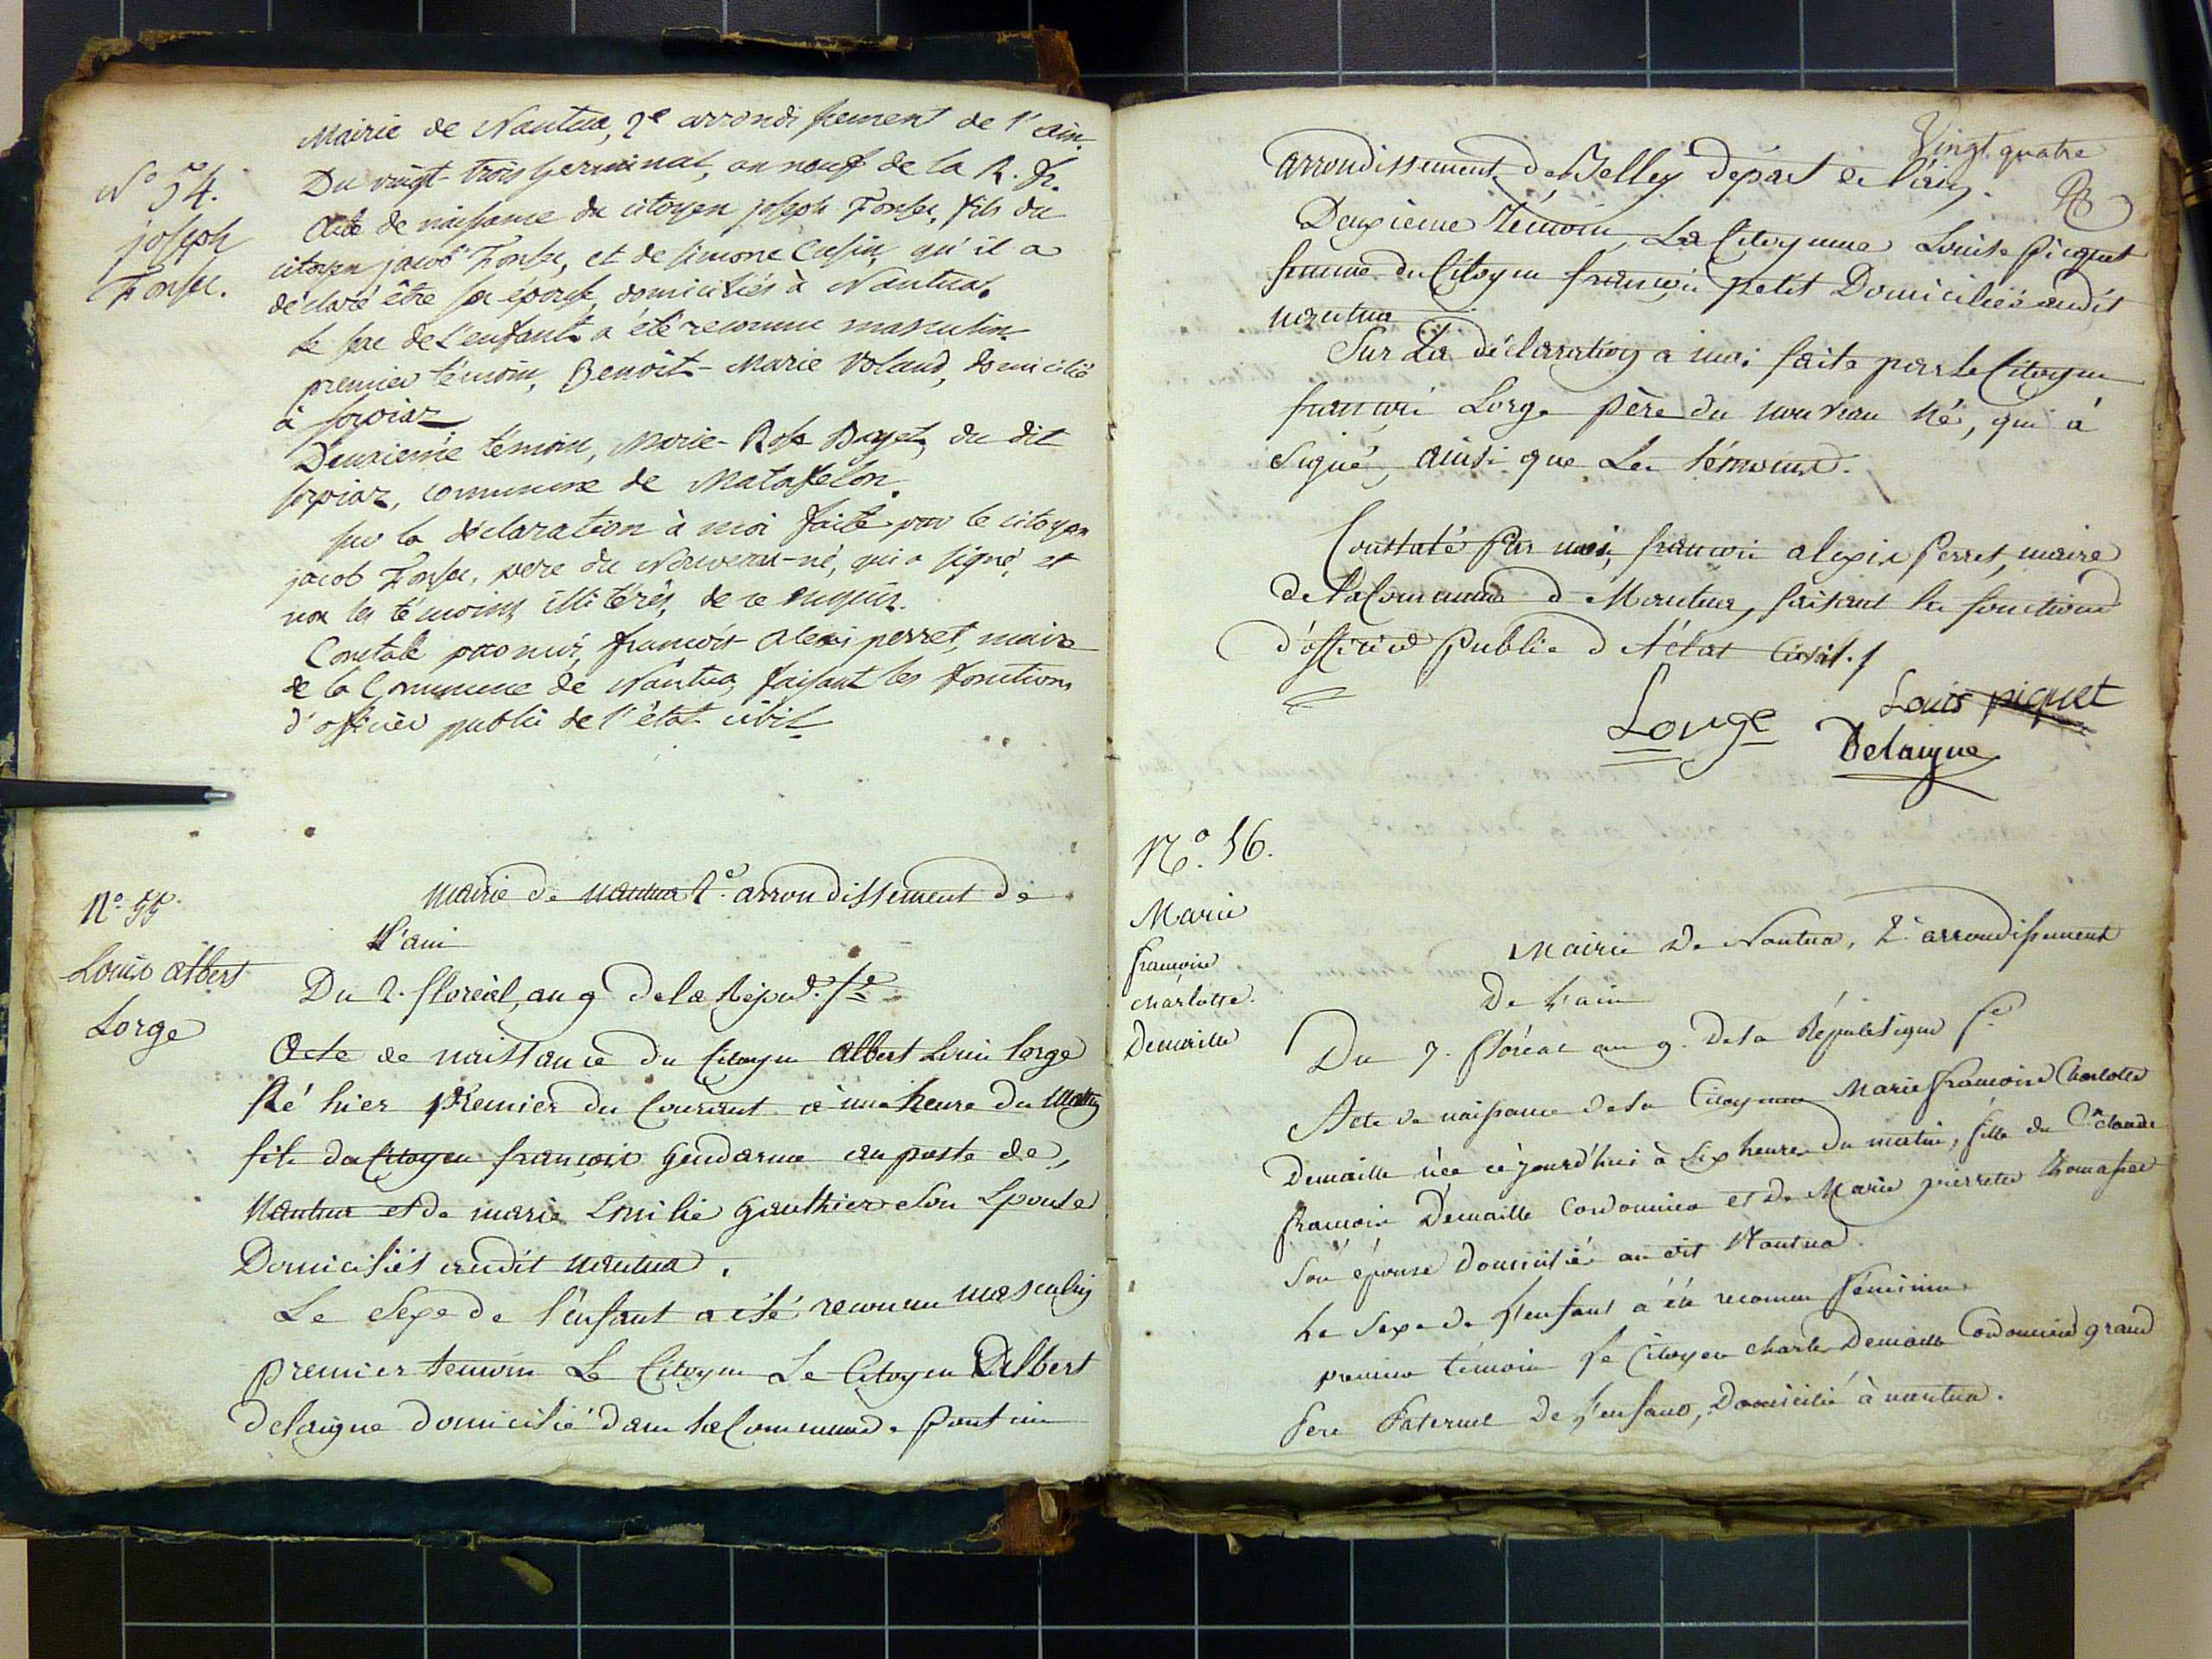 Mairie de Nantua, 2e arrondissement de l'ain.
N° 54.
joseph
Fonsec.
Du vingt-trois germinal, an neuf de la R. fr.
Acte de naissance du citoyen joseph Fonsec, fils du
citoyen jacob Fonsec, et de simone Cusin, qu'il a
déclaré être son épouse, domiciliés à Nantua.
le sexe de l'enfant a été reconnu masculin.
premier témoin, Benoit-Marie Volaud, domicilié
à sorpiaz
Deuxième témoin, Marie-Rose Buget, du dit
sorpiaz, commune de Matafelon.
sur la déclaration à moi faite par le citoyen
jacob Fonsec, père du Nouveau-né, qui a signé, et
non les témoins illitérés, de ce enquis.
Constaté par moi, françois alexis perret, maire
de la Commune de Nantua, faisant les fonctions
d'officier public de l'état civil
N° 55
Louis albert
Lorge
Mairie de nantua 2e arrondissement de
l'ain
Du 2. floréal, an 9 de la Répub. fse
Acte de naissance du Citoyen albert Louis lorge
Né hier premier du Courant à une heure du Matin
fils du Citoyen françois gendarme au poste de
Nantua et de marie Emilie gauthier son Epouse
Domiciliés audit nantua.
Le Sexe de l'enfant a été reconnu masculin
premier temoin Le Citoyen Le Citoyen Albert
delaigne domicilié dans la Commune de pont
Vingt quatre
arrondissement de Belley départ de l'ain.
Deuxième témoin, La Citoyenne Louise piquet
femme du Citoyen françois petit Domiciliée audit
nantua
Sur La déclaration a moi faite par le Citoyen
françois Lorge père du nouveau né, qui à
signé, ainsi que Les témoins.
Constaté par moi, françois alexis perret, maire
de la Commune de Nantua, faisant les fonctions
d'officier public de l'état Civil.
Lorge
Louis piquet
Delaigne
N°. 56.
Marie
françoise
charlotte
Demaille
Mairie De Nantua, 2e arrondissement
De l'ain
Du 7. floréal an 9. De la République fse
Acte de naissance de la Citoyenne Marie françoise Charlotte
Demaille née ce jourd'hui à six heures du matin, fille du Cen claude
françois Demaille Cordonnier et De Marie pierrette thomasset
son épouse domiciliés au dit Nantua.
Le Sexe de l'enfant a été reconnu féminin
premier témoin le Citoyen charles Demaille Cordonnier grand
Père Paternel De l'enfant, Domicilié à nantua.